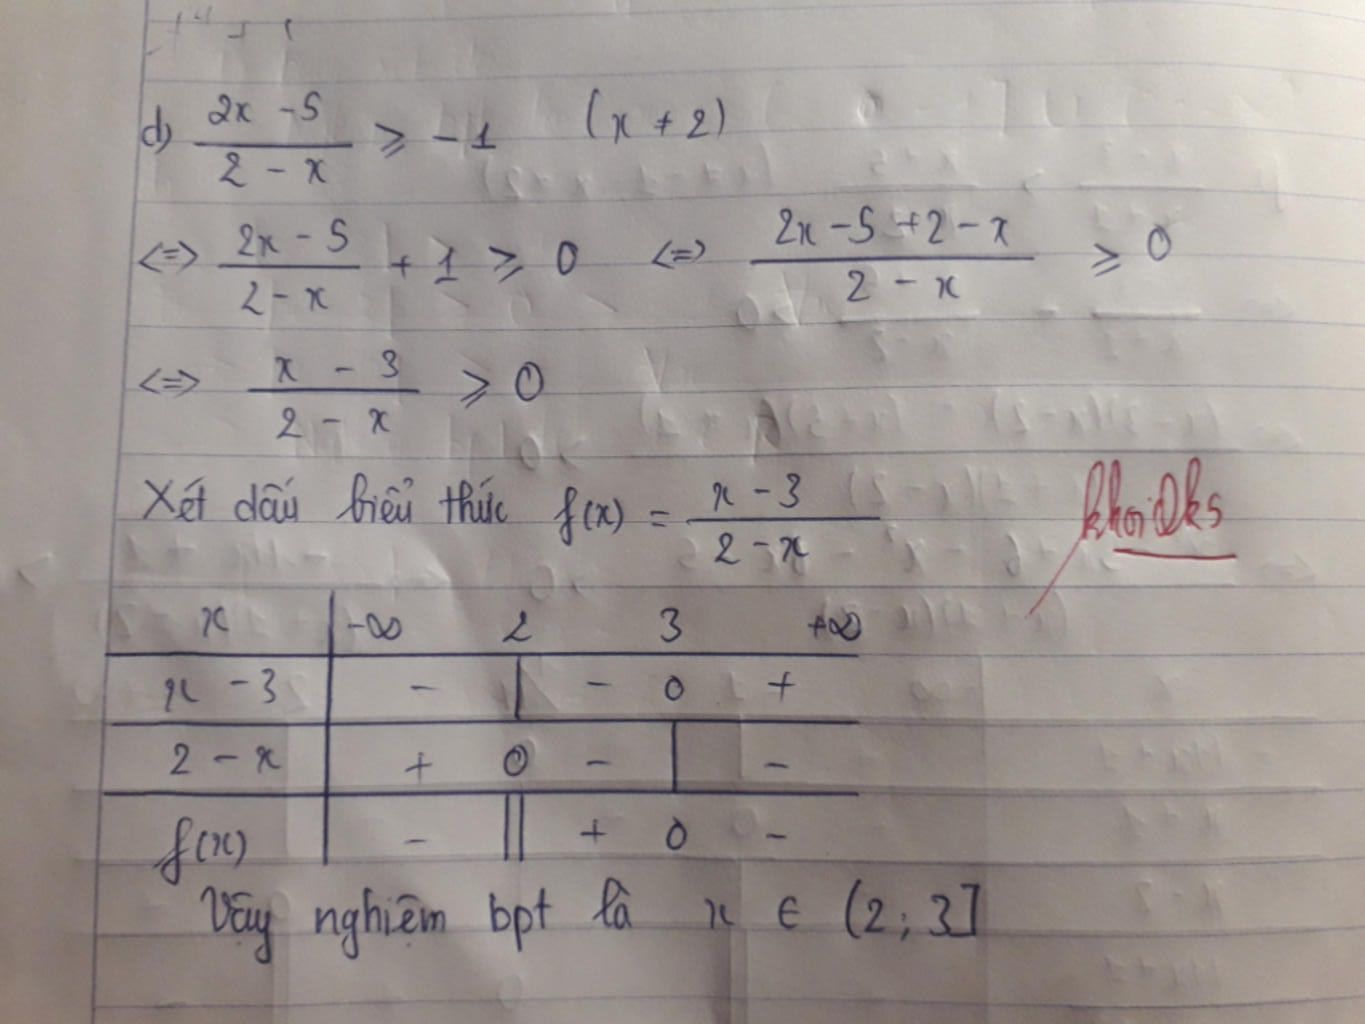 d) \frac{2x - 5}{2 - x} ⩾ -1 (x + 2)
<=> \frac{2x - 5}{2 - x} + 1 ⩾ 0 <=> \frac{2x - 5 + 2 - x}{2 - x} ⩾ 0
<=> \frac{x - 3}{2 - x} ⩾ 0
Xét dấu biểu thức f(x) = \frac{x - 3}{2 - x}
khoiDks
x | -∞ 2 3 +∞
x - 3 | - | - 0 +
2 - x | + 0 - | -
f(x) | - || + 0 -
Vậy nghiệm bpt là x ∈ (2; 3]